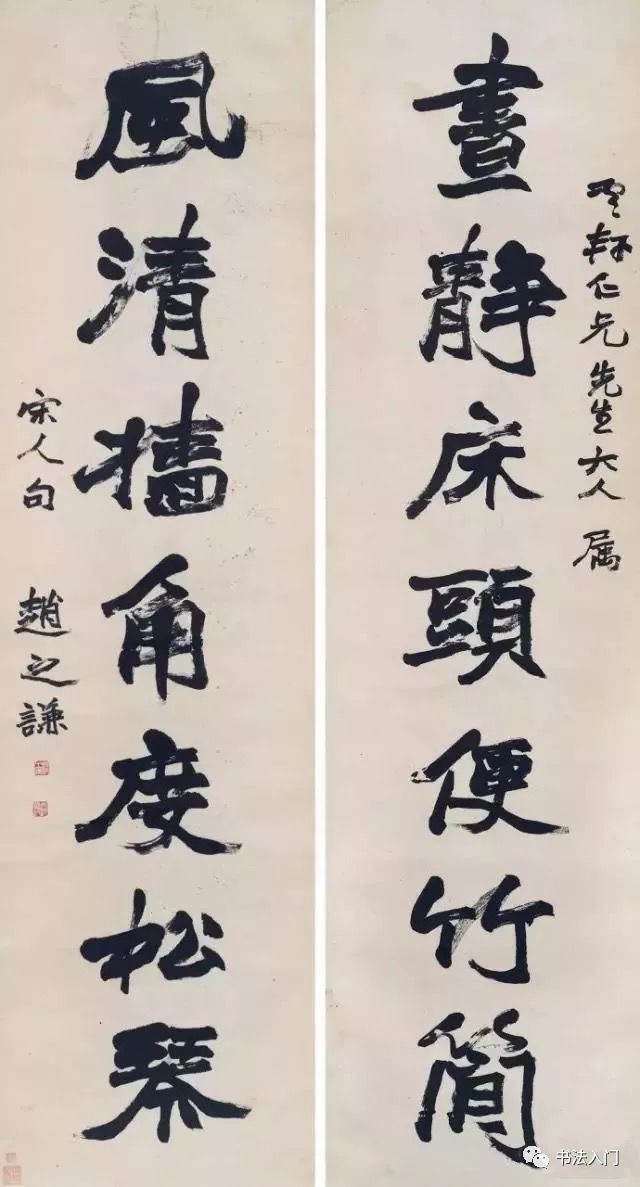 仁兄先生大人属
晝靜床頭便竹簡
風清牆角度松琴
宋人句 趙之謙
书法入门